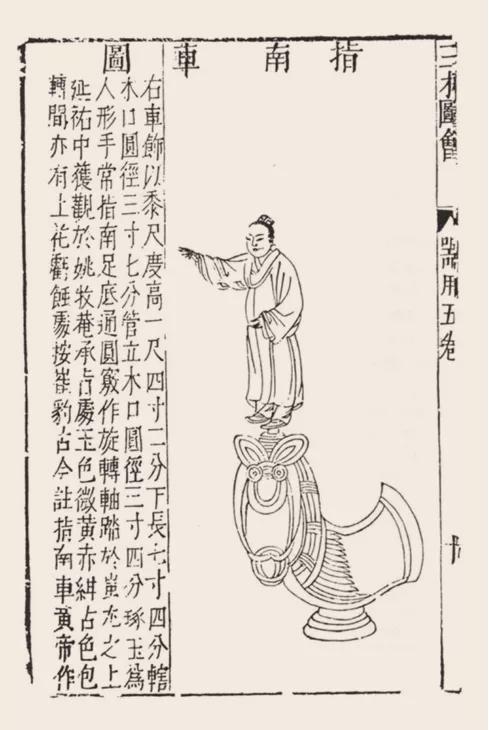 三才圖會
器用五卷
指南車圖
右車飾以黍尺慶高一尺四寸二分下長七寸四分轄
木口圓徑三寸七分管立木口圓徑三寸四分琢玉為
人形手常指南足底通圓竅作旋轉軸踏於蚩尤之上
延祐中獲觀於姚牧菴承旨處玉色微黃赤紺古色包
轉間亦有土花蝕處按崔豹古今註指南車黃帝作